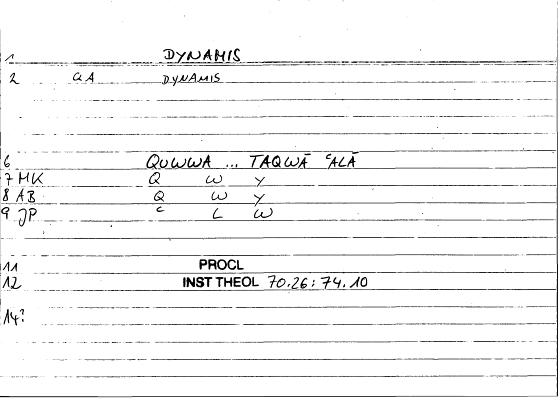 1 DYNAMIS
2 QA DYNAMIS
6 QUWWA ... TAQWĀ ʿALĀ
7 MK Q W Y
8 AB Q W Y
9 JP ʿ L W
11 PROCL
12 INST THEOL 70.26: 74.10
14?